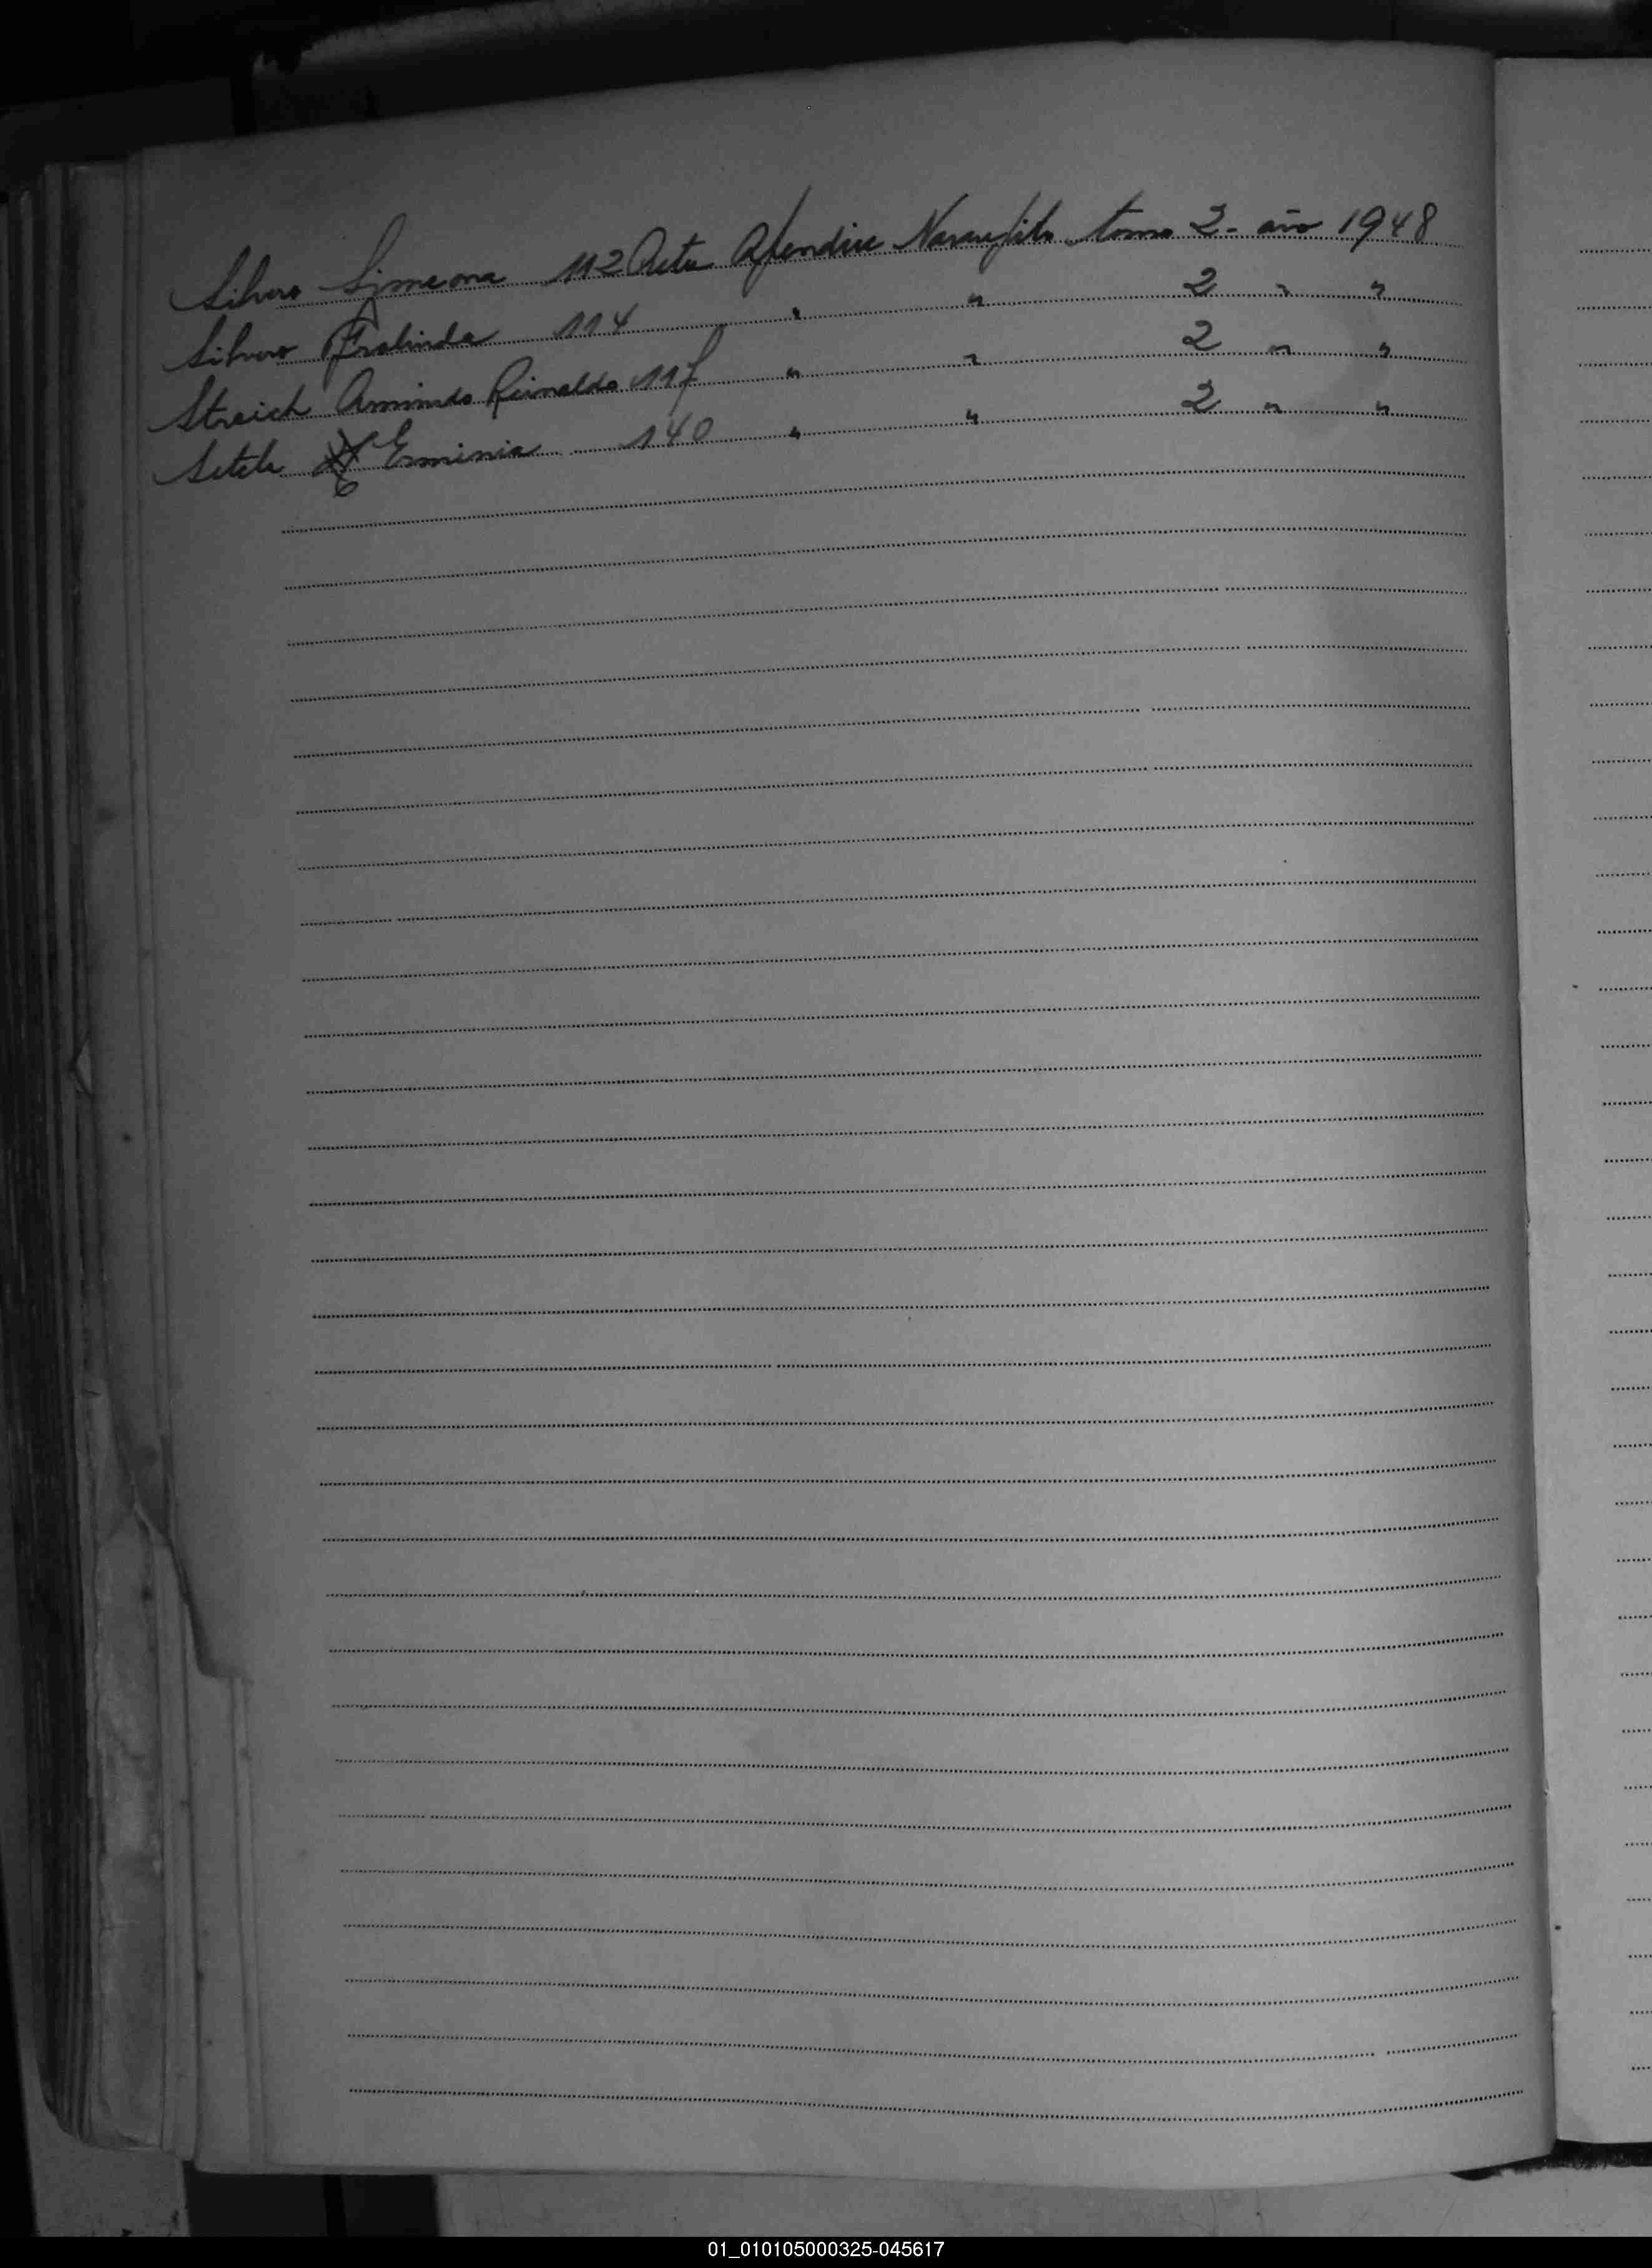 Silvero Simeona 112 Acta Apendice Naranjito tomo 2- año 1948
Silvero Fralinda 114 " " 2 " "
Streich Armindo Reinaldo 117 " " 2 " "
Erminia 140 " " 2 " "
01_010105000325-045617